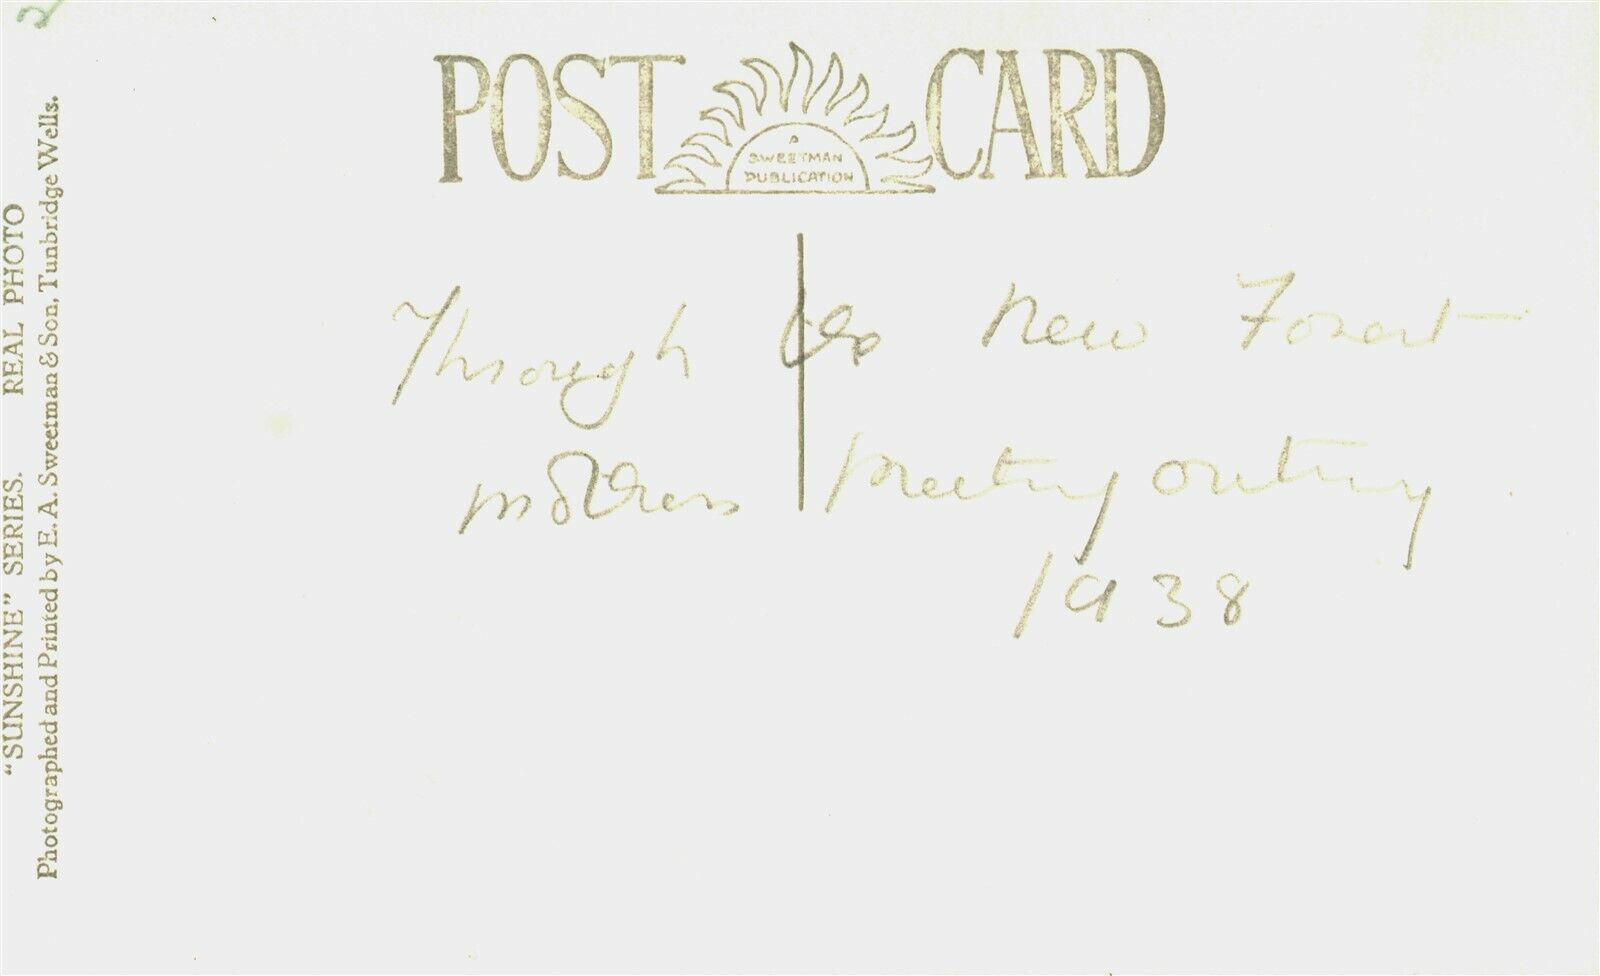 POST CARD
A
SWEETMAN
PUBLICATION
Through the New Forest
mothers meeting outing
1938
"SUNSHINE" SERIES. REAL PHOTO
Photographed and Printed by E. A. Sweetman & Son, Tunbridge Wells.